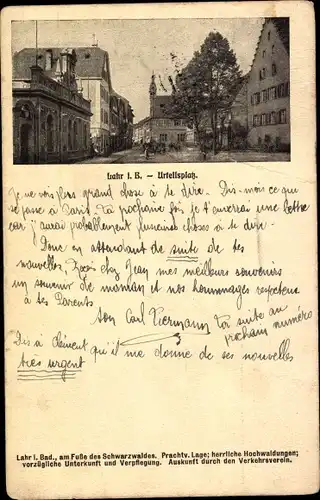 Lahr i. B. — Urteilsplatz.
Je ne vois plus grand chose à te dire. Dis-moi ce qui
se passe à Paris. La prochaine fois je t'enverrai une lettre
car j'aurai probablement plusieures choses à te dire.
Donc en attendant de suite de tes
nouvelles, reçois cher Jean mes meilleurs souvenirs
un souvenir de maman et nos hommages respectueux
à tes Parents
ton Carl Viermann
La suite au
prochain numéro
Dis à Clément qu'il me donne de ses nouvelles
très urgent
Lahr i. Bad., am Fuße des Schwarzwaldes. Prachtv. Lage; herrliche Hochwaldungen;
vorzügliche Unterkunft und Verpflegung. Auskunft durch den Verkehrsverein.